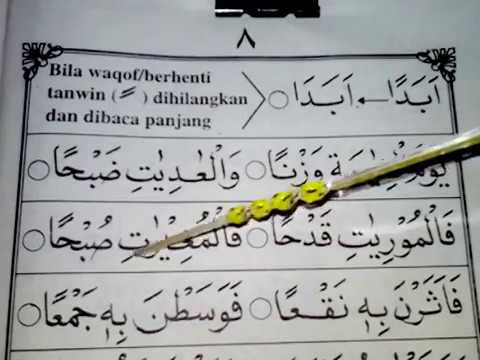 ٨
اَبَدًا ← اَبَدَا ○
Bila waqof/berhenti
tanwin ( ـً ) dihilangkan
dan dibaca panjang
يَوْمَ وَزْنًا ○ وَالْعٰدِيٰتِ ضَبْحًا ○
فَالْمُوْرِيٰتِ قَدْحًا ○ فَالْمُغِيْرٰتِ صُبْحًا ○
فَاَثَرْنَ بِهٖ نَقْعًا ○ فَوَسَطْنَ بِهٖ جَمْعًا ○